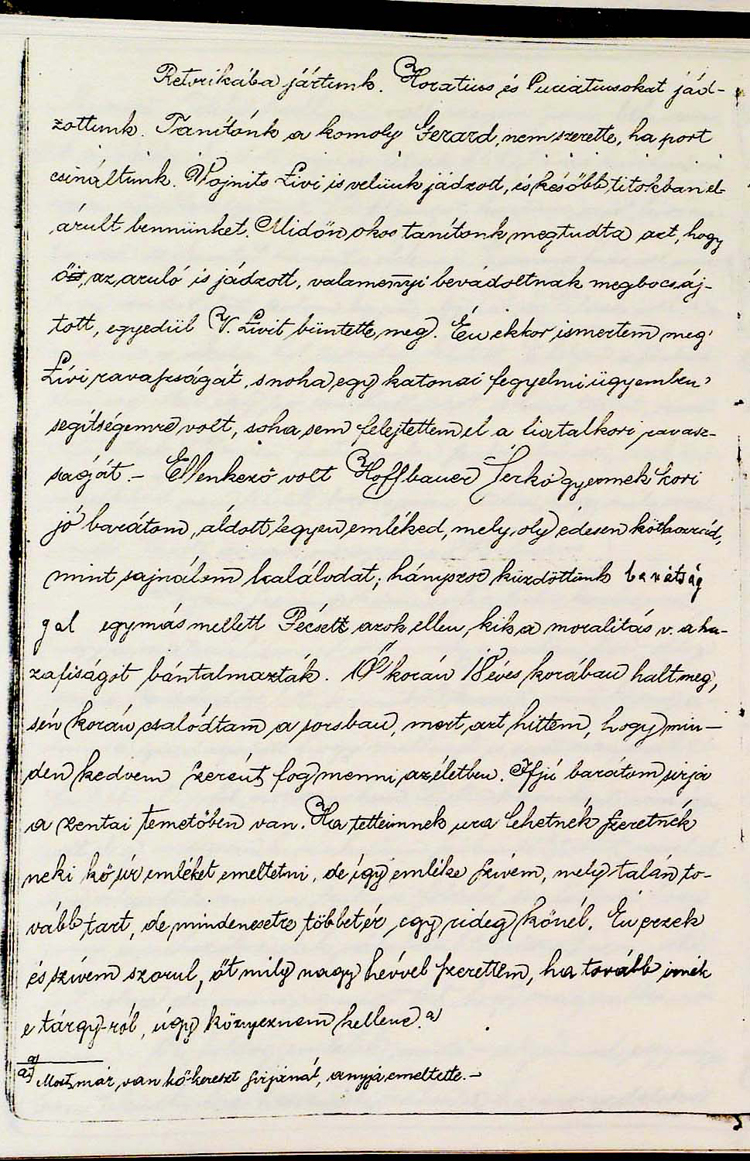 Retorikába jártunk. Horatius és Curiatiusokat ját-
zottunk. Tanítónk a komoly Gerard, nem szerette, ha port
csináltunk. Vojnits Livi is velünk jádzott, és később titokban el-
árult bennünket. Midőn okos tanítonk megtudta azt, hogy
ő is, az áruló is jádzott, valamennyi bevádoltnak megbocsáj-
tott, egyedül V. Livit büntette meg. Én ekkor ismertem meg
Livi ravaszságát, s noha egy katonai fegyelmi ügyemben
segítségemre volt, soha sem felejtettem el a fiatalkori ravasz-
ságát. – Ellenkező volt Hoffbauer Ferkó gyermekkori
jó barátom, áldott legyen emléked, mely oly édesen köt hozzád,
mint sajnálom halálodat; hányszor küzdöttünk barátság
gal egymás mellett Pécsett azok ellen, kik a moralitás v. a ha-
zafiságot bántalmazták. Ő korán 18 éves korában halt meg,
s én korán csalódtam a sorsban, mert azt hittem, hogy min-
den kedvem szerént fog menni az életben. Ifjú barátom sírja
a zentai temetőben van. Ha tetteimnek ura lehetnék szeretnék
neki kő sír emléket emeltetni, de így emléke szívem, mely talán to-
vább tart, de mindenesetre többet ér egy rideg kőnél. Én érzek
és szívem szorul, őt mily nagy hévvel szerettem, ha tovább irnék
e tárgy-ról, úgy könyeznem kellene. a)
a) Most már van kő-kereszt sirjánál, anyja emeltette. –